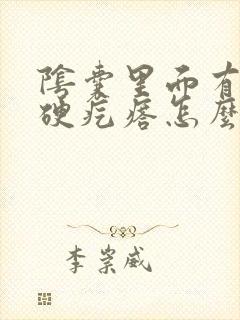 陰囊里而有
硬疙瘩怎麼
李崇威